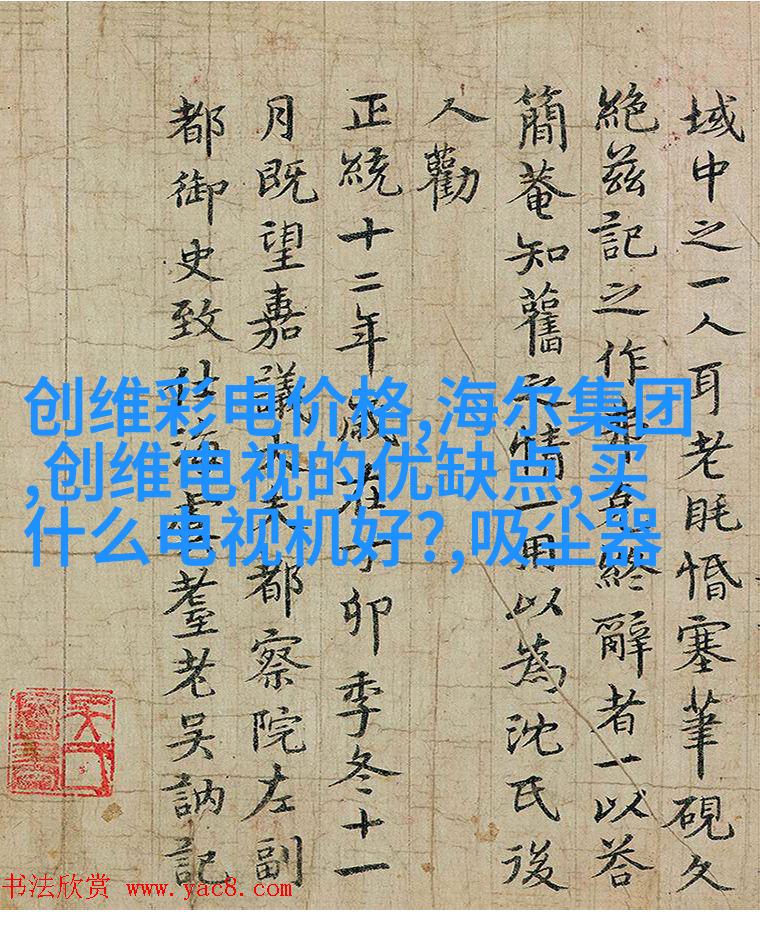 域中之一人耳老眊惛塞筆硯久
絶兹記之作弗克終辭者一以荅
簡菴知舊之情一用以為沈氏後
人勸
正統十二年歲在丁卯季冬十一
月既望嘉議大夫都察院左副
都御史致仕海虞耋老吳訥記
创维彩电价格,海尔集团
,创维电视的优缺点,买
什么电视机好?,吸尘器
书法欣赏 www.yac8.com